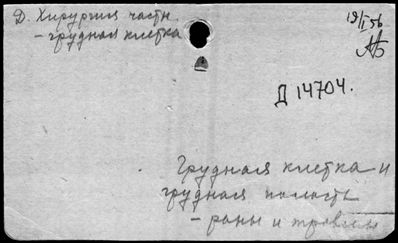 Д. Хирургия частн.
- грудная клетка
19/II 56
Д 14704.
Грудная клетка и
грудная полость
- раны и травмы